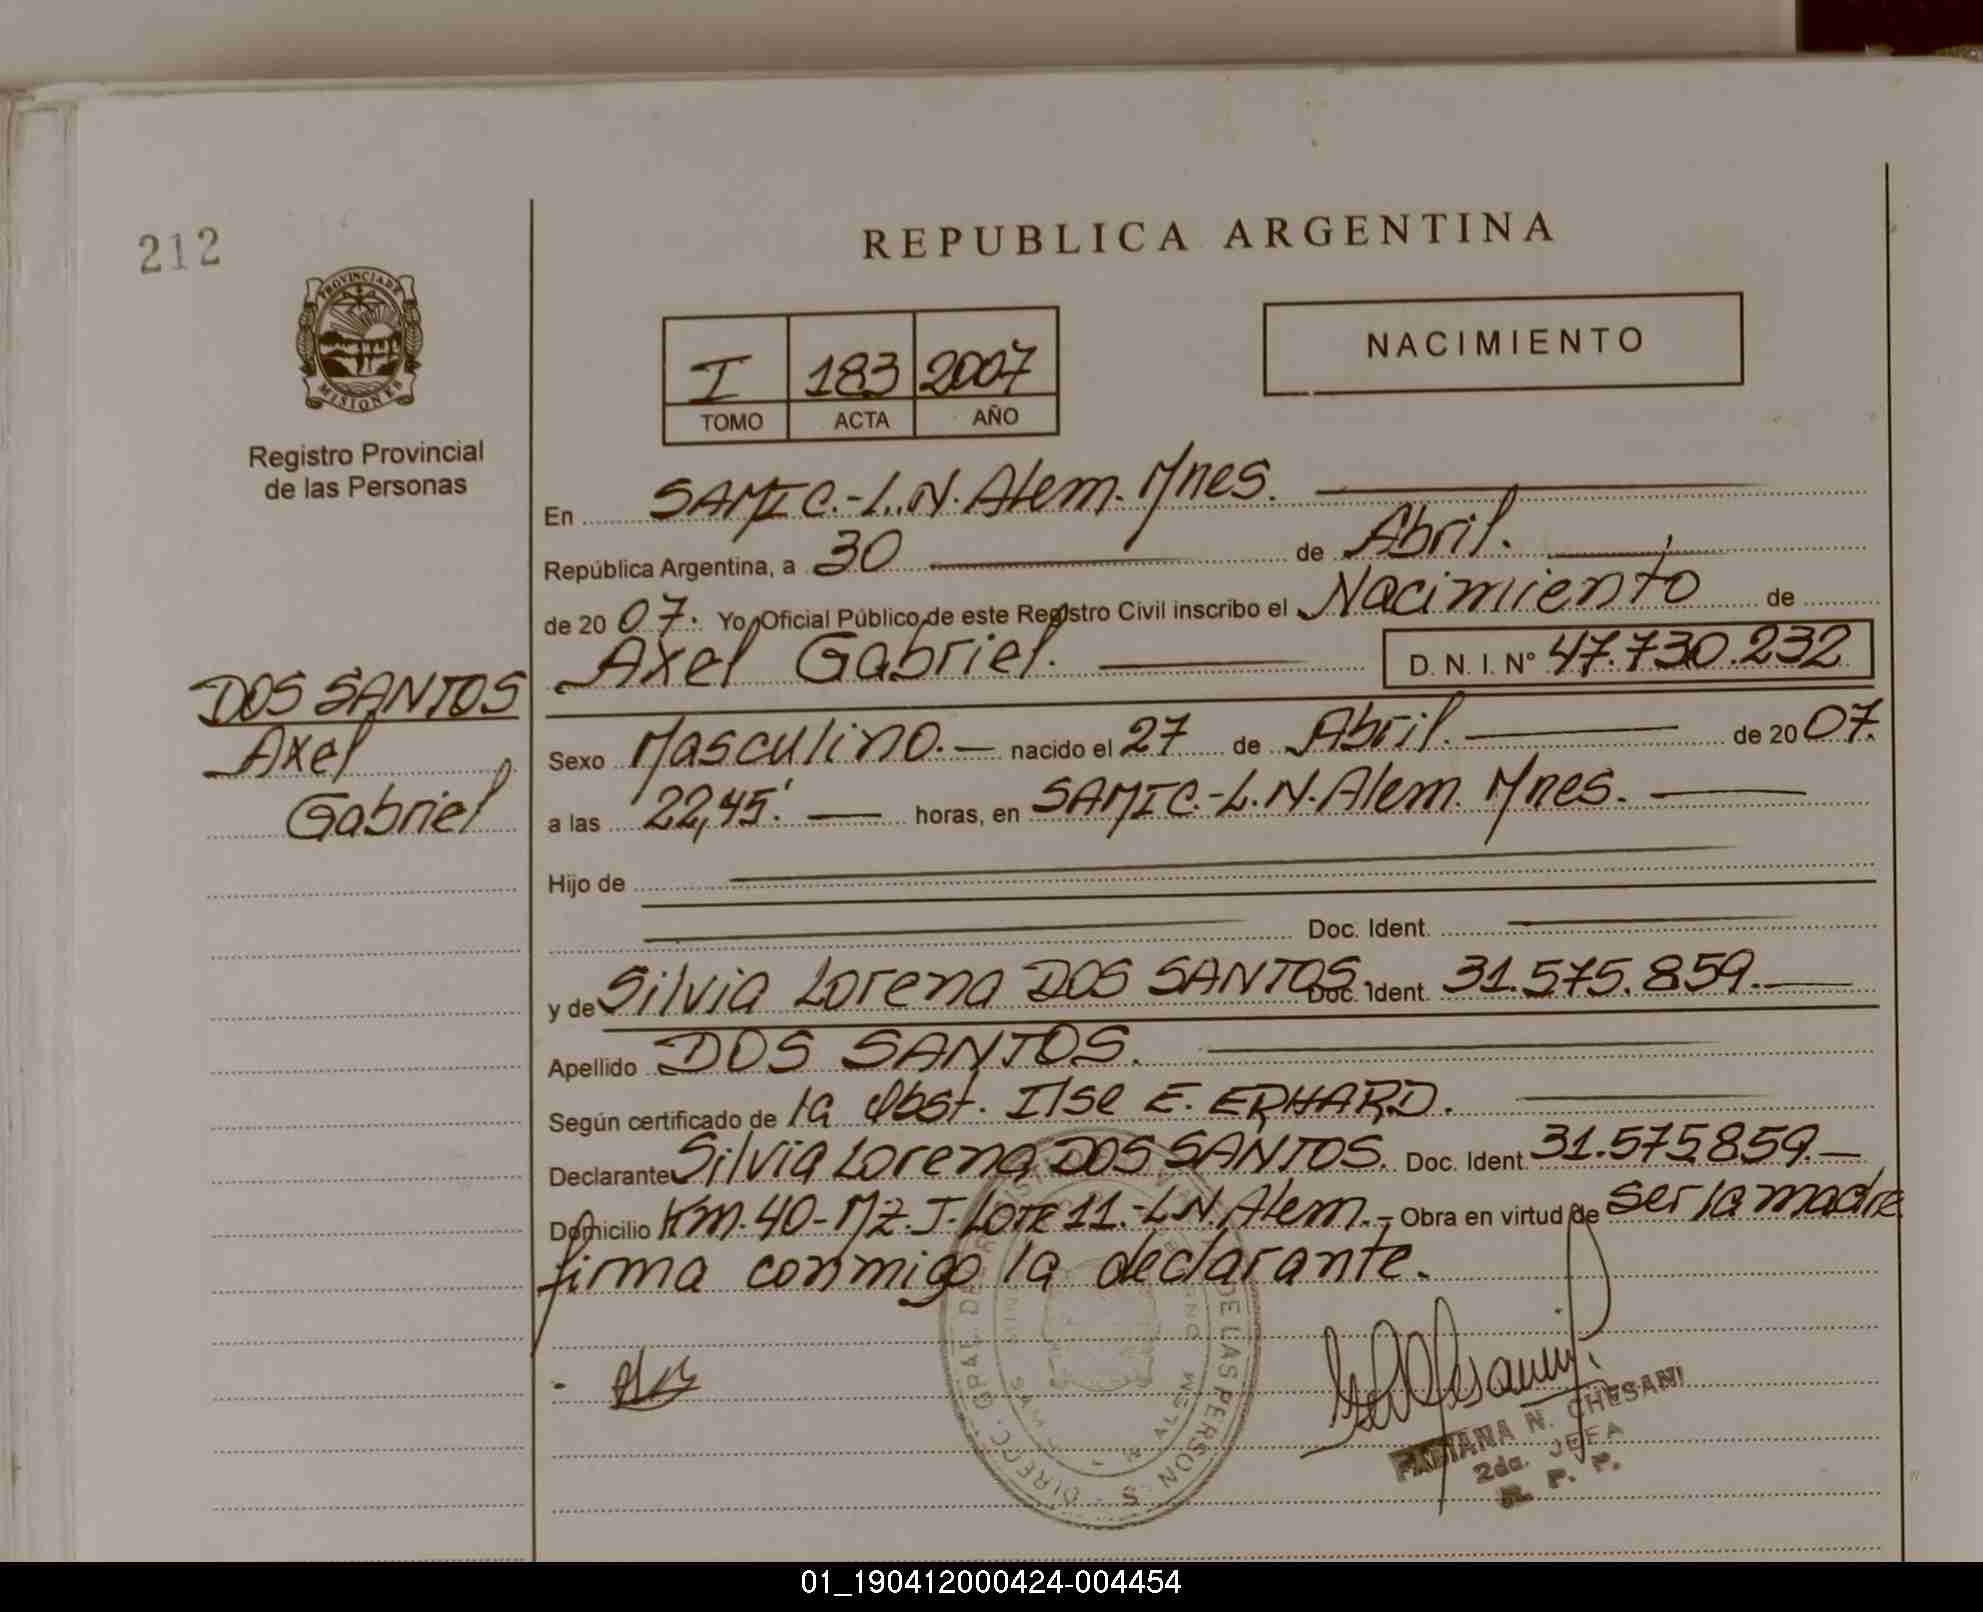 212
REPUBLICA ARGENTINA
PROVINCIA DE
MISIONES
Registro Provincial
de las Personas
I 183 2007
TOMO ACTA AÑO
NACIMIENTO
En SAMIC.-L.N.Alem.Mnes.
República Argentina, a 30 de Abril.
de 20 07. Yo Oficial Público de este Registro Civil inscribo el Nacimiento de
Axel Gabriel. D. N. I. Nº 47.730.232
DOS SANTOS
Axel
Gabriel
Sexo Masculino.- nacido el 27 de Abril. de 20 07.
a las 22,45' horas, en SAMIC.-L.N.Alem. Mnes.
Hijo de
Doc. Ident.
y de Silvia Lorena DOS SANTOS. Doc. Ident. 31.575.859.
Apellido DOS SANTOS.
Según certificado de la Obst. Ilse E. ERHARD.
Declarante Silvia Lorena DOS SANTOS. Doc. Ident. 31.575.859.-
Domicilio Km.40-Mz.J-Lote 11.-L.N.Alem.- Obra en virtud de ser la madre
firma conmigo la declarante.
FABIANA N. CHESANI
2da. JEFA
R. P. P.
01_190412000424-004454